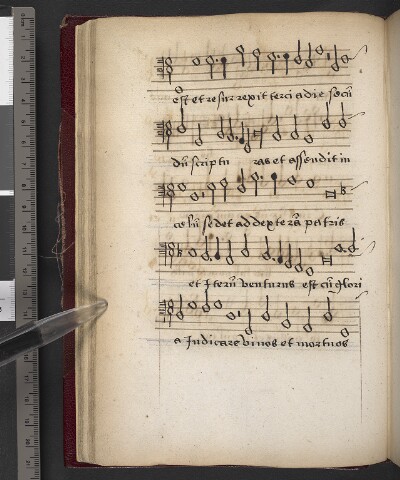 est et resurrexit tercia die secū
dū scriptu ras et assendit in
celū sedet ad dexterā patris
et Iterū venturus est cū glori
a Iudicare vivos et mortuos